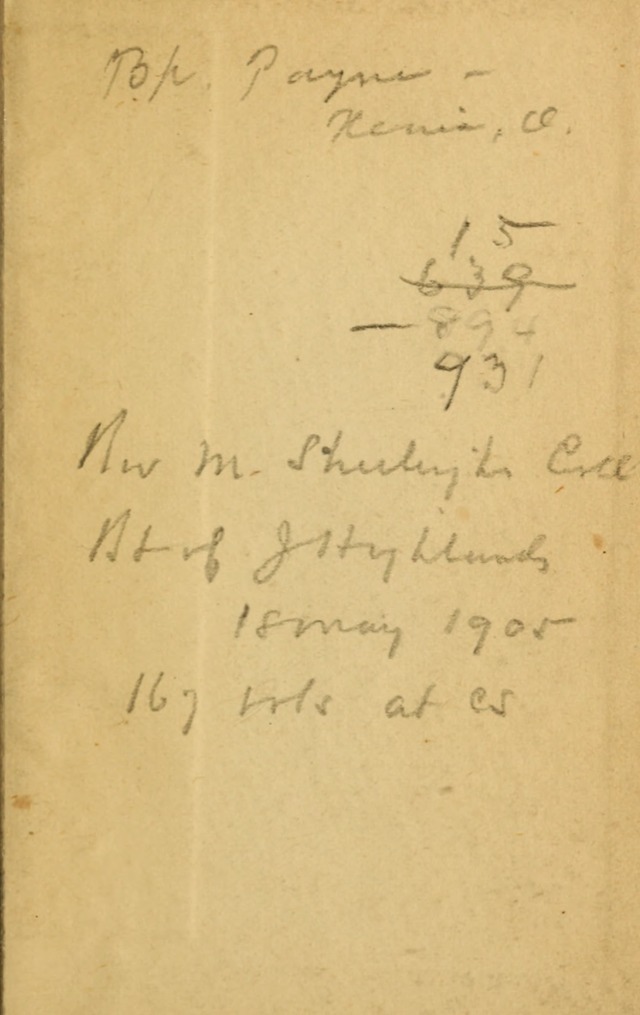 Bp. Payne -
Xenia, O.
15
639
- 894
931
Rev M. Coll
Bt of J Hyhlands
18 May 1905
167 vols at